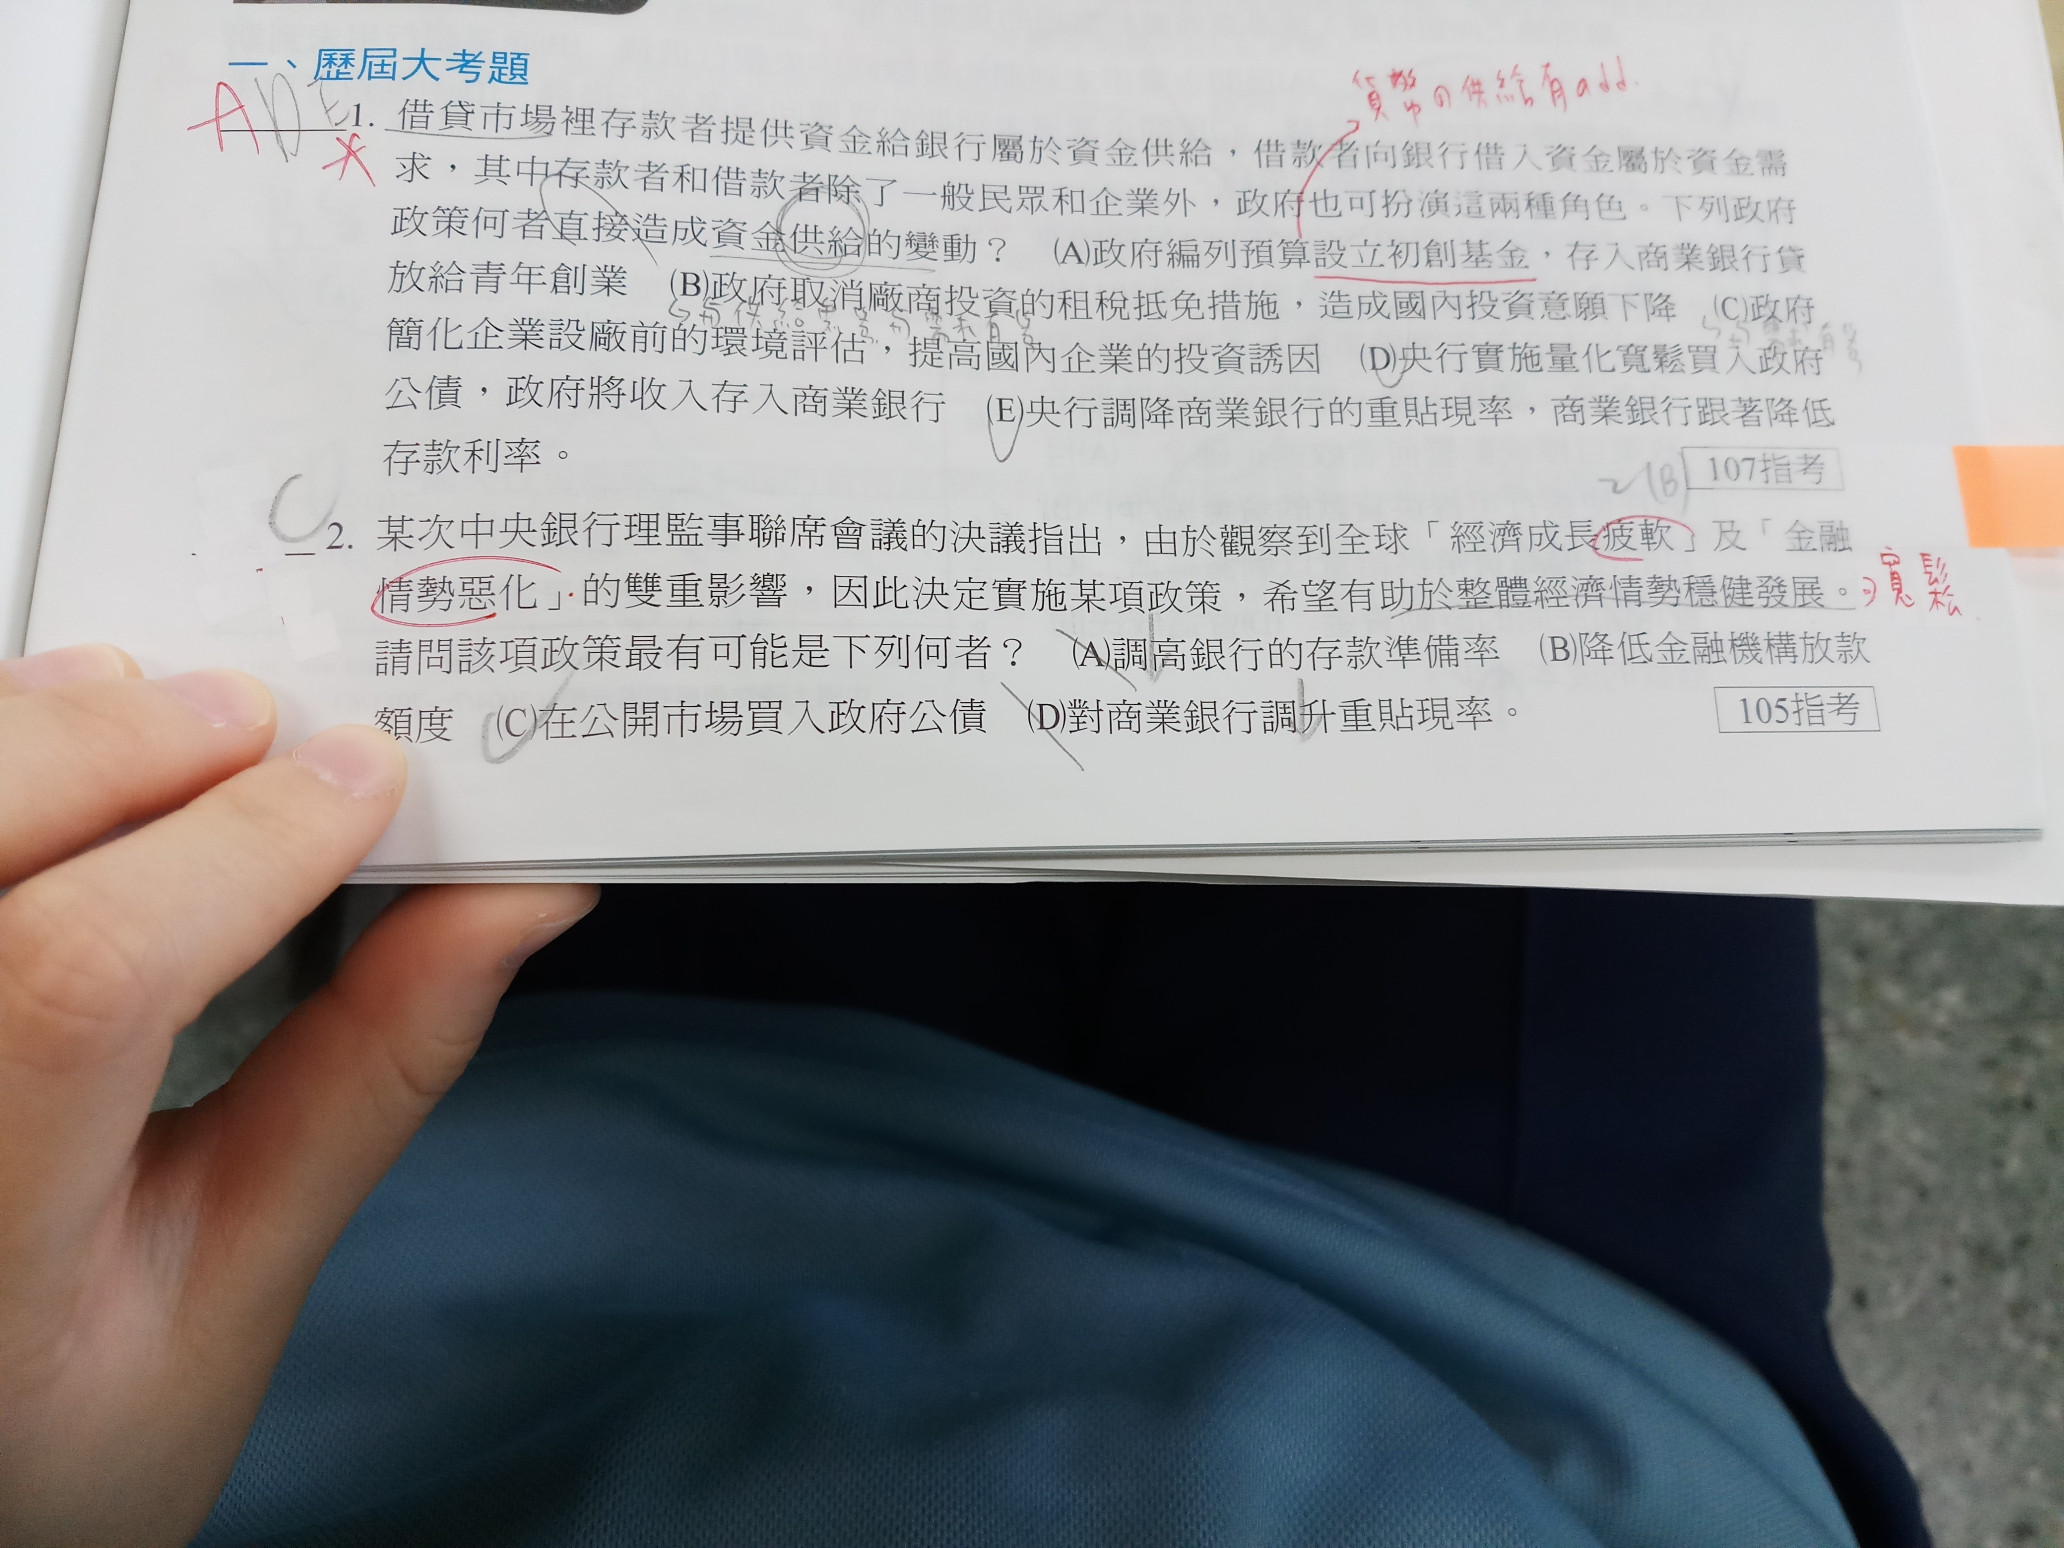 一、歷屆大考題
貨幣の供給有add.
ADE 1. 借貸市場裡存款者提供資金給銀行屬於資金供給，借款者向銀行借入資金屬於資金需
求，其中存款者和借款者除了一般民眾和企業外，政府也可扮演這兩種角色。下列政府
政策何者直接造成資金供給的變動？ (A)政府編列預算設立初創基金，存入商業銀行貸
放給青年創業 (B)政府取消廠商投資的租稅抵免措施，造成國內投資意願下降 (C)政府
簡化企業設廠前的環境評估，提高國內企業的投資誘因 (D)央行實施量化寬鬆買入政府
公債，政府將收入存入商業銀行 (E)央行調降商業銀行的重貼現率，商業銀行跟著降低
存款利率。
107指考
C 2. 某次中央銀行理監事聯席會議的決議指出，由於觀察到全球「經濟成長疲軟」及「金融
情勢惡化」的雙重影響，因此決定實施某項政策，希望有助於整體經濟情勢穩健發展。
寬鬆
請問該項政策最有可能是下列何者？ (A)調高銀行的存款準備率 (B)降低金融機構放款
額度 (C)在公開市場買入政府公債 (D)對商業銀行調升重貼現率。
105指考